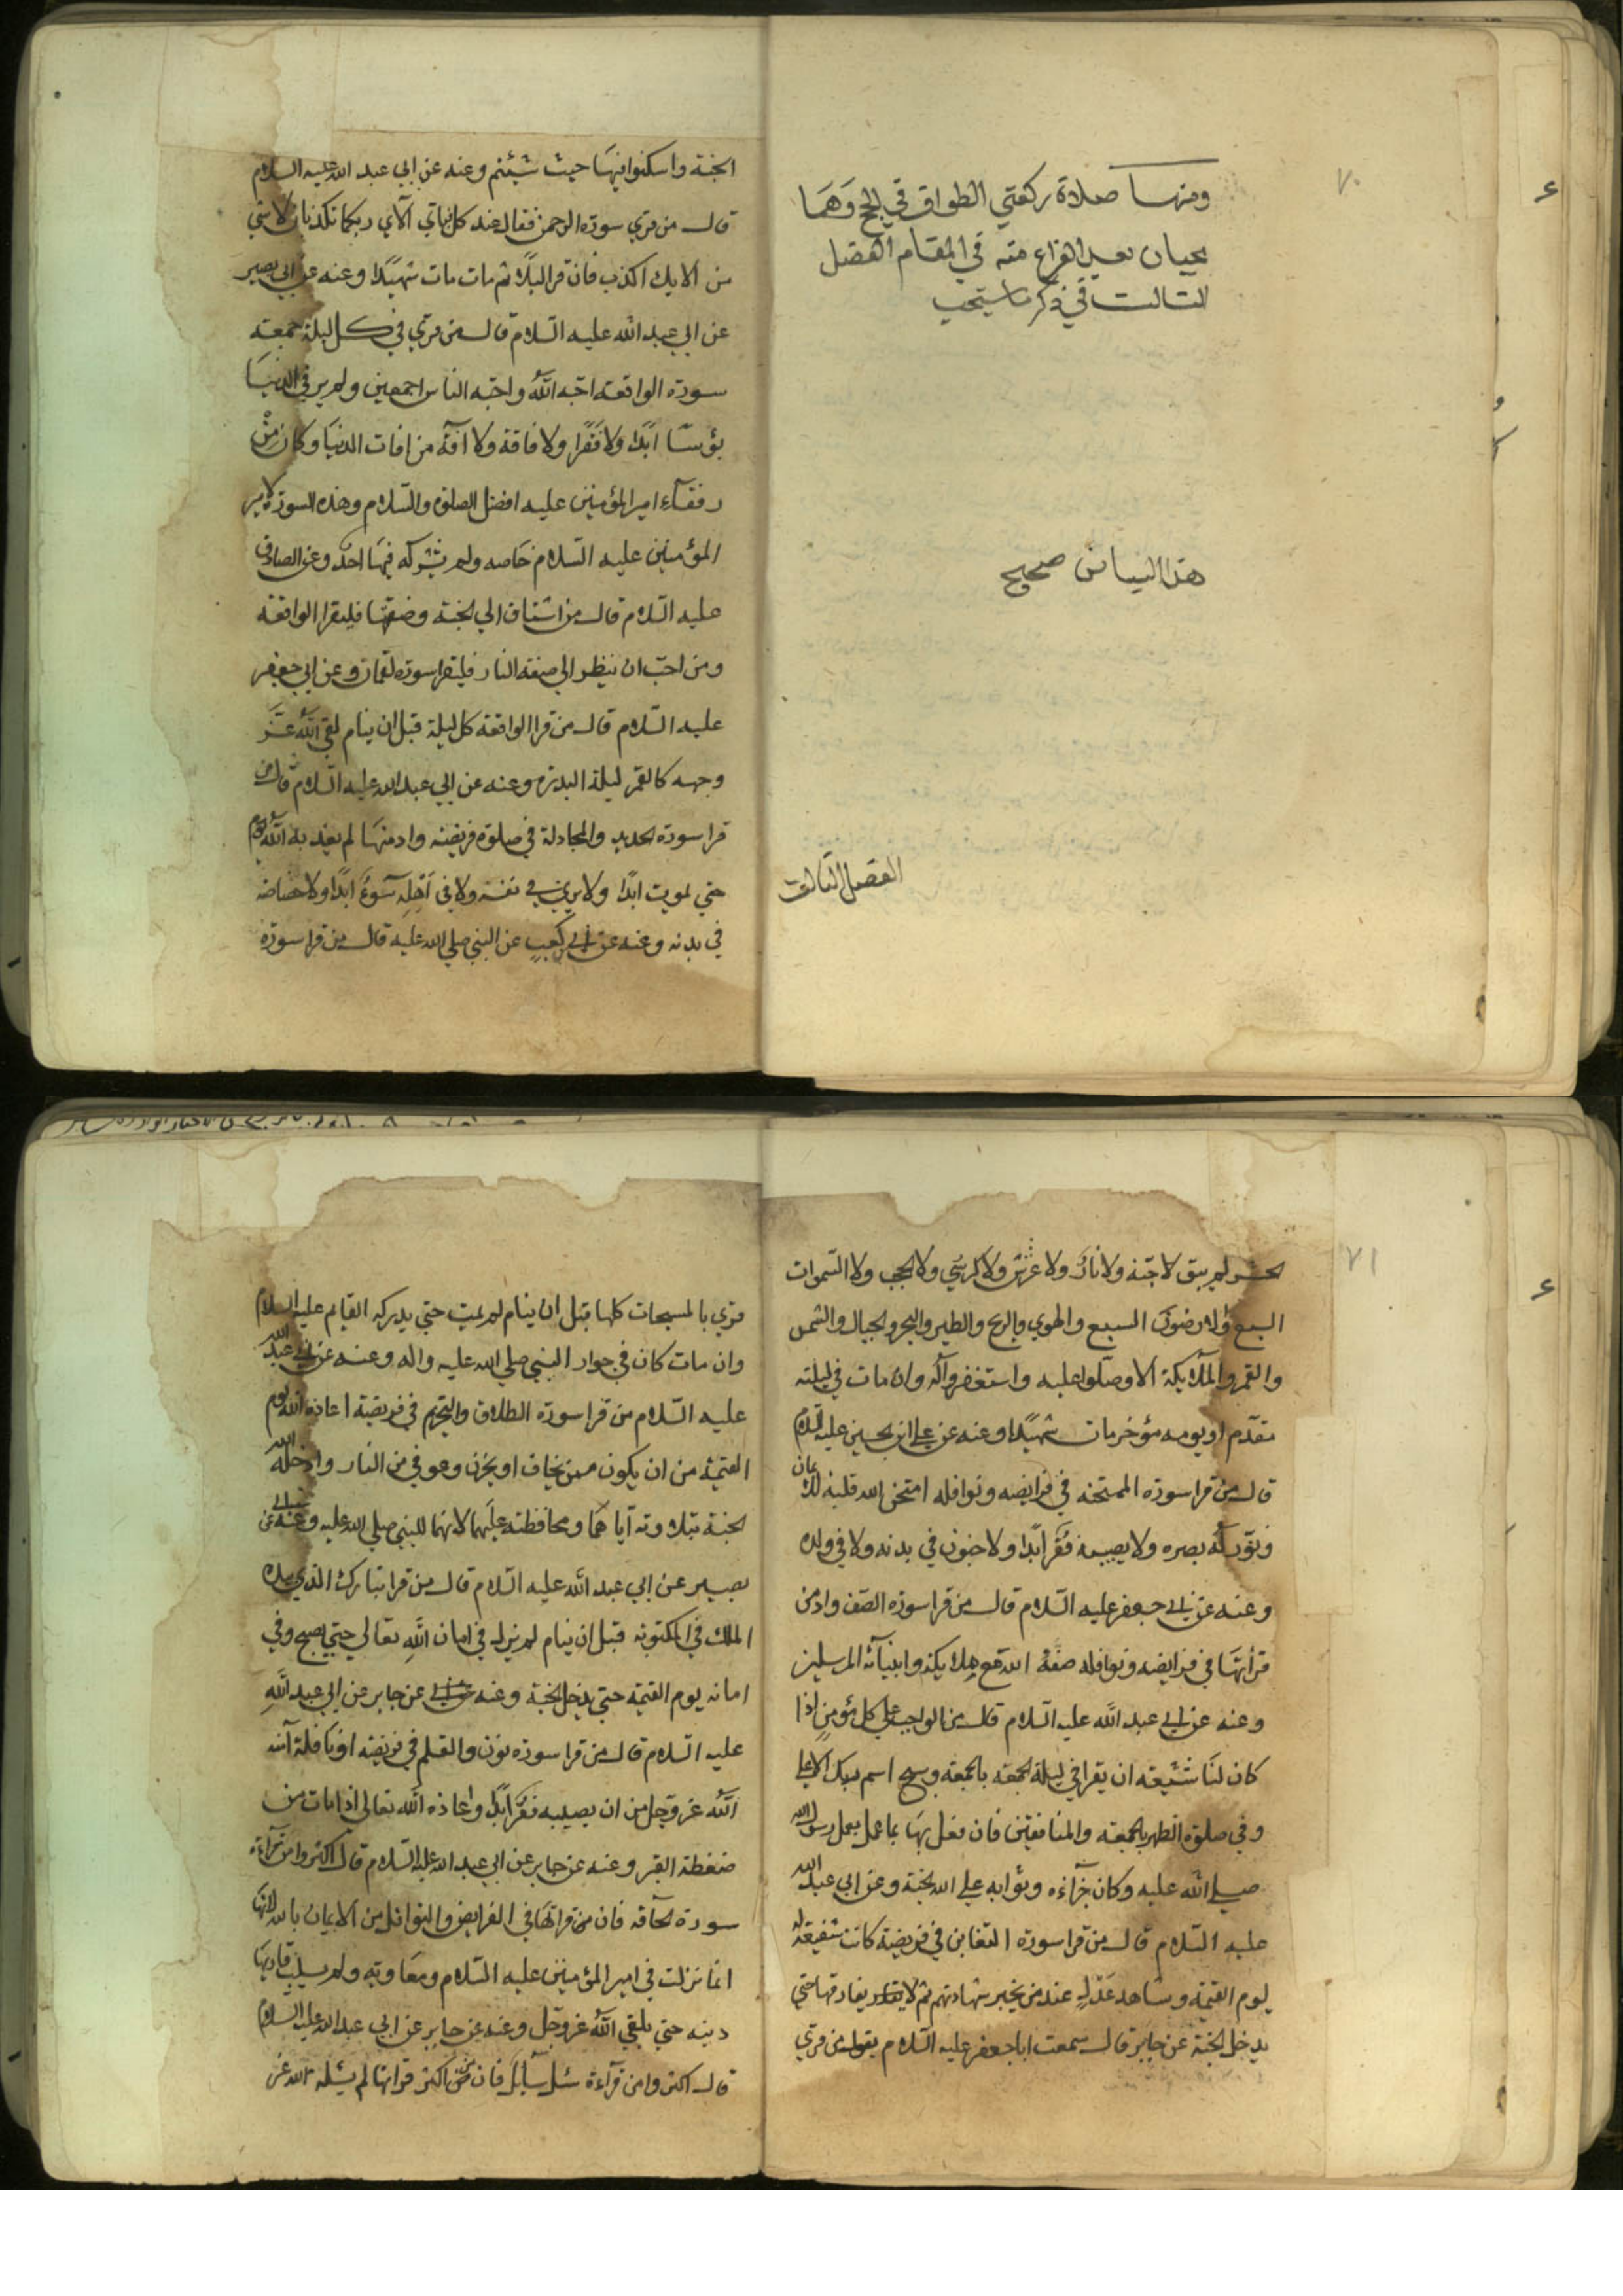 ٧٠
ومنها صلاة ركعتي الطواف في الحج وهما
يجبان بعد الفراغ منه في المقام الفصل
الثالث في ذكر ما يستحب
هذا البياض صحيح
الفصل الثالث
الجنة واسكنوا فيها حيث شئتم وعنه عن ابي عبد الله عليه السلام
قال من قري سورة الرحمن فقال عند كل فباي آلآي ربكما تكذبان لا بشي
من الايك اكذب فان قرا ليلا ثم مات مات شهيدا وعنه عن ابي بصير
عن ابي عبد الله عليه السلام قال من قري في كل ليلة جمعة
سورة الواقعة احبه الله واحبه الناس اجمعين ولم ير في الدنيا
بؤسا ابدا ولا فقرا ولا فاقة ولا آفة من افات الدنيا وكان من
رفقآء امير المؤمنين عليه افضل الصلوة والسلام وهذه السورة لامير
المؤمنين عليه السلام خاصه ولم يشركه فيها احد وعن الصادق
عليه السلام قال من اشتاق الي الجنة وصفتها فليقرا الواقعة
ومن احب ان ينظر الي صفة النار فليقرا سورة لقمان وعن ابي جعفر
عليه السلام قال من قرا الواقعة كل ليلة قبل ان ينام لقي الله عز
وجهه كالقمر ليلة البدر وعنه عن ابي عبد الله عليه السلام قال من
قرا سورة الحديد والمجادلة في صلوة فريضة وادمنها لم يعذبه الله
حتي يموت ابدا ولا يري في نفسه ولا في اهله سوءً ابدا ولا خصاصة
في بدنه وعنه عن ابي بن كعب عن النبي صلي الله عليه قال من قرا سورة
٧١
الحشر لم يبق لا جنة ولا نار ولا عرش ولا كرسي ولا الحجب ولا السموات
السبع ولا الارضون السبع والهوي والريح والطير والشجر والجبال والشمس
والقمر والملائكة الا وصلوا عليه واستغفروا له وان مات في ليلته
مقدم او يومه مؤخر مات شهيدا وعنه عن علي ابن الحسين عليه السلام
قال من قرا سورة الممتحنه في فرايضه ونوافله امتحن الله قلبه للايمان
ونور له بصره ولا يصيبه فقر ابدا ولا جنون في بدنه ولا في ولده
وعنه عن ابي جعفر عليه السلام قال من قرا سورة الصف وادمن
قرأتها في فرايضه ونوافله صفه الله مع ملايكته وانبيآئه المرسلين
وعنه عن ابي عبد الله عليه السلام قال من الواجب علي كل مؤمن اذا
كان لنا شيعه ان يقرا في ليلة الجمعه بالجمعة وسبح اسم ربك الاعلي
وفي صلوة الظهر بالجمعة والمنافقين فان فعل بها بما عمل يعمل رسول الله
صلي الله عليه وكان جزآءه وثوابه علي الله الجنة وعن ابي عبد الله
عليه السلام قال من قرا سورة التغابن في فريضة كانت شفيعة له
يوم القيمة وشاهد عدل عند من يجيز شهادتهم ثم لا يفارقها حتي
يدخل الجنة عن جابر قال سمعت ابا جعفر عليه السلام يقول من قري
قري بالمسبحات كلها قبل ان ينام لم يمت حتي يدركه القايم عليه السلام
وان مات كان في جوار النبي صلي الله عليه واله وعنه عن ابي عبد الله
عليه السلام من قرا سورة الطلاق والتحريم في فريضة اعاذه الله يوم
القيمة من ان يكون ممن يخاف او يحزن وعوفي من النار وادخله الله
الجنة بتلاوته اياهما ومحافظته عليهما لانهما للنبي صلي الله عليه وعنه عن ابي
بصير عن ابي عبد الله عليه السلام قال من قرا تبارك الذي بيده
الملك في المكتوبة قبل ان ينام لم يزل في امان الله تعالي حتي يصبح وفي
امانه يوم القيمة حتي يدخل الجنة وعنه عن جابر عن ابي عبد الله
عليه السلام قال من قرا سورة نون والقلم في فريضه او نافلة آمنه
الله عز وجل من ان يصيبه فقر ابدا واعاذه الله تعالي اذا مات من
ضغطة القبر وعنه عن جابر عن ابي عبد الله عليه السلام قال اكثروا من قرآءة
سورة الحآقه فان من قرأتها في الفرايض والنوافل من الايمان بالله لانها
انما نزلت في امير المؤمنين عليه السلام ومعاويه ولم يسلب قاريها
دينه حتي يلقي الله عز وجل وعنه عن جابر عن ابي عبد الله عليه السلام
قال اكثروا من قرآءة سئل سآئل فان من اكثر قرأتها لم يسئله الله عن